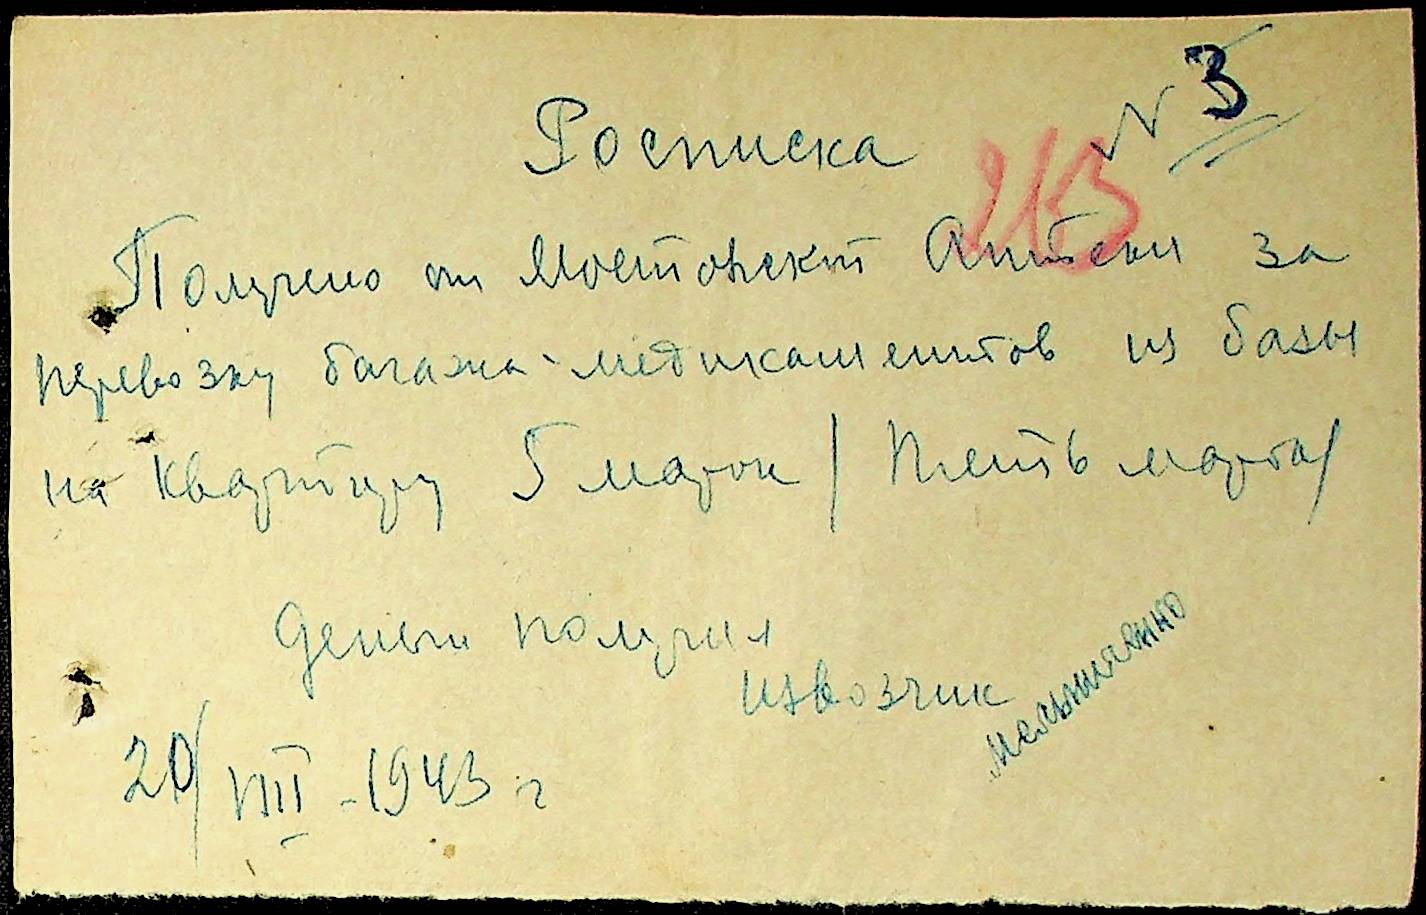 № 3
Росписка
213
Получено от Мостовской Аптеки за
перевозку багажа - медикаментов из базы
на квартиру 5 марок / Пять марок/
Деньги получил
извозчик
20/VIII - 1943 г